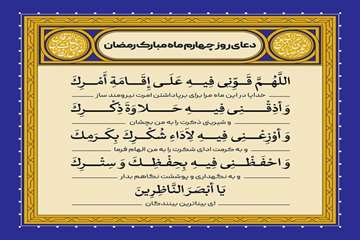 دعای روز چهارم ماه مبارک رمضان
اللَّهُمَّ قَوِّنِی فِیهِ عَلَی إِقَامَةِ أَمْرِکَ
خدایا در این ماه مرا برای برپاداشتن امرت نیرومند ساز
وَ أَذِقْنِی فِیهِ حَلاوَةَ ذِکْرِکَ
و شیرینی ذکرت را به من بچشان
وَ أَوْزِعْنِی فِیهِ لِأَدَاءِ شُکْرِکَ بِکَرَمِکَ
و به کرمت ادای شکرت را به من الهام فرما
وَ احْفَظْنِی فِیهِ بِحِفْظِکَ وَ سِتْرِکَ
و به نگهداری و پوششت نگاهم بدار
یَا أَبْصَرَ النَّاظِرِینَ
ای بیناترین بینندگان